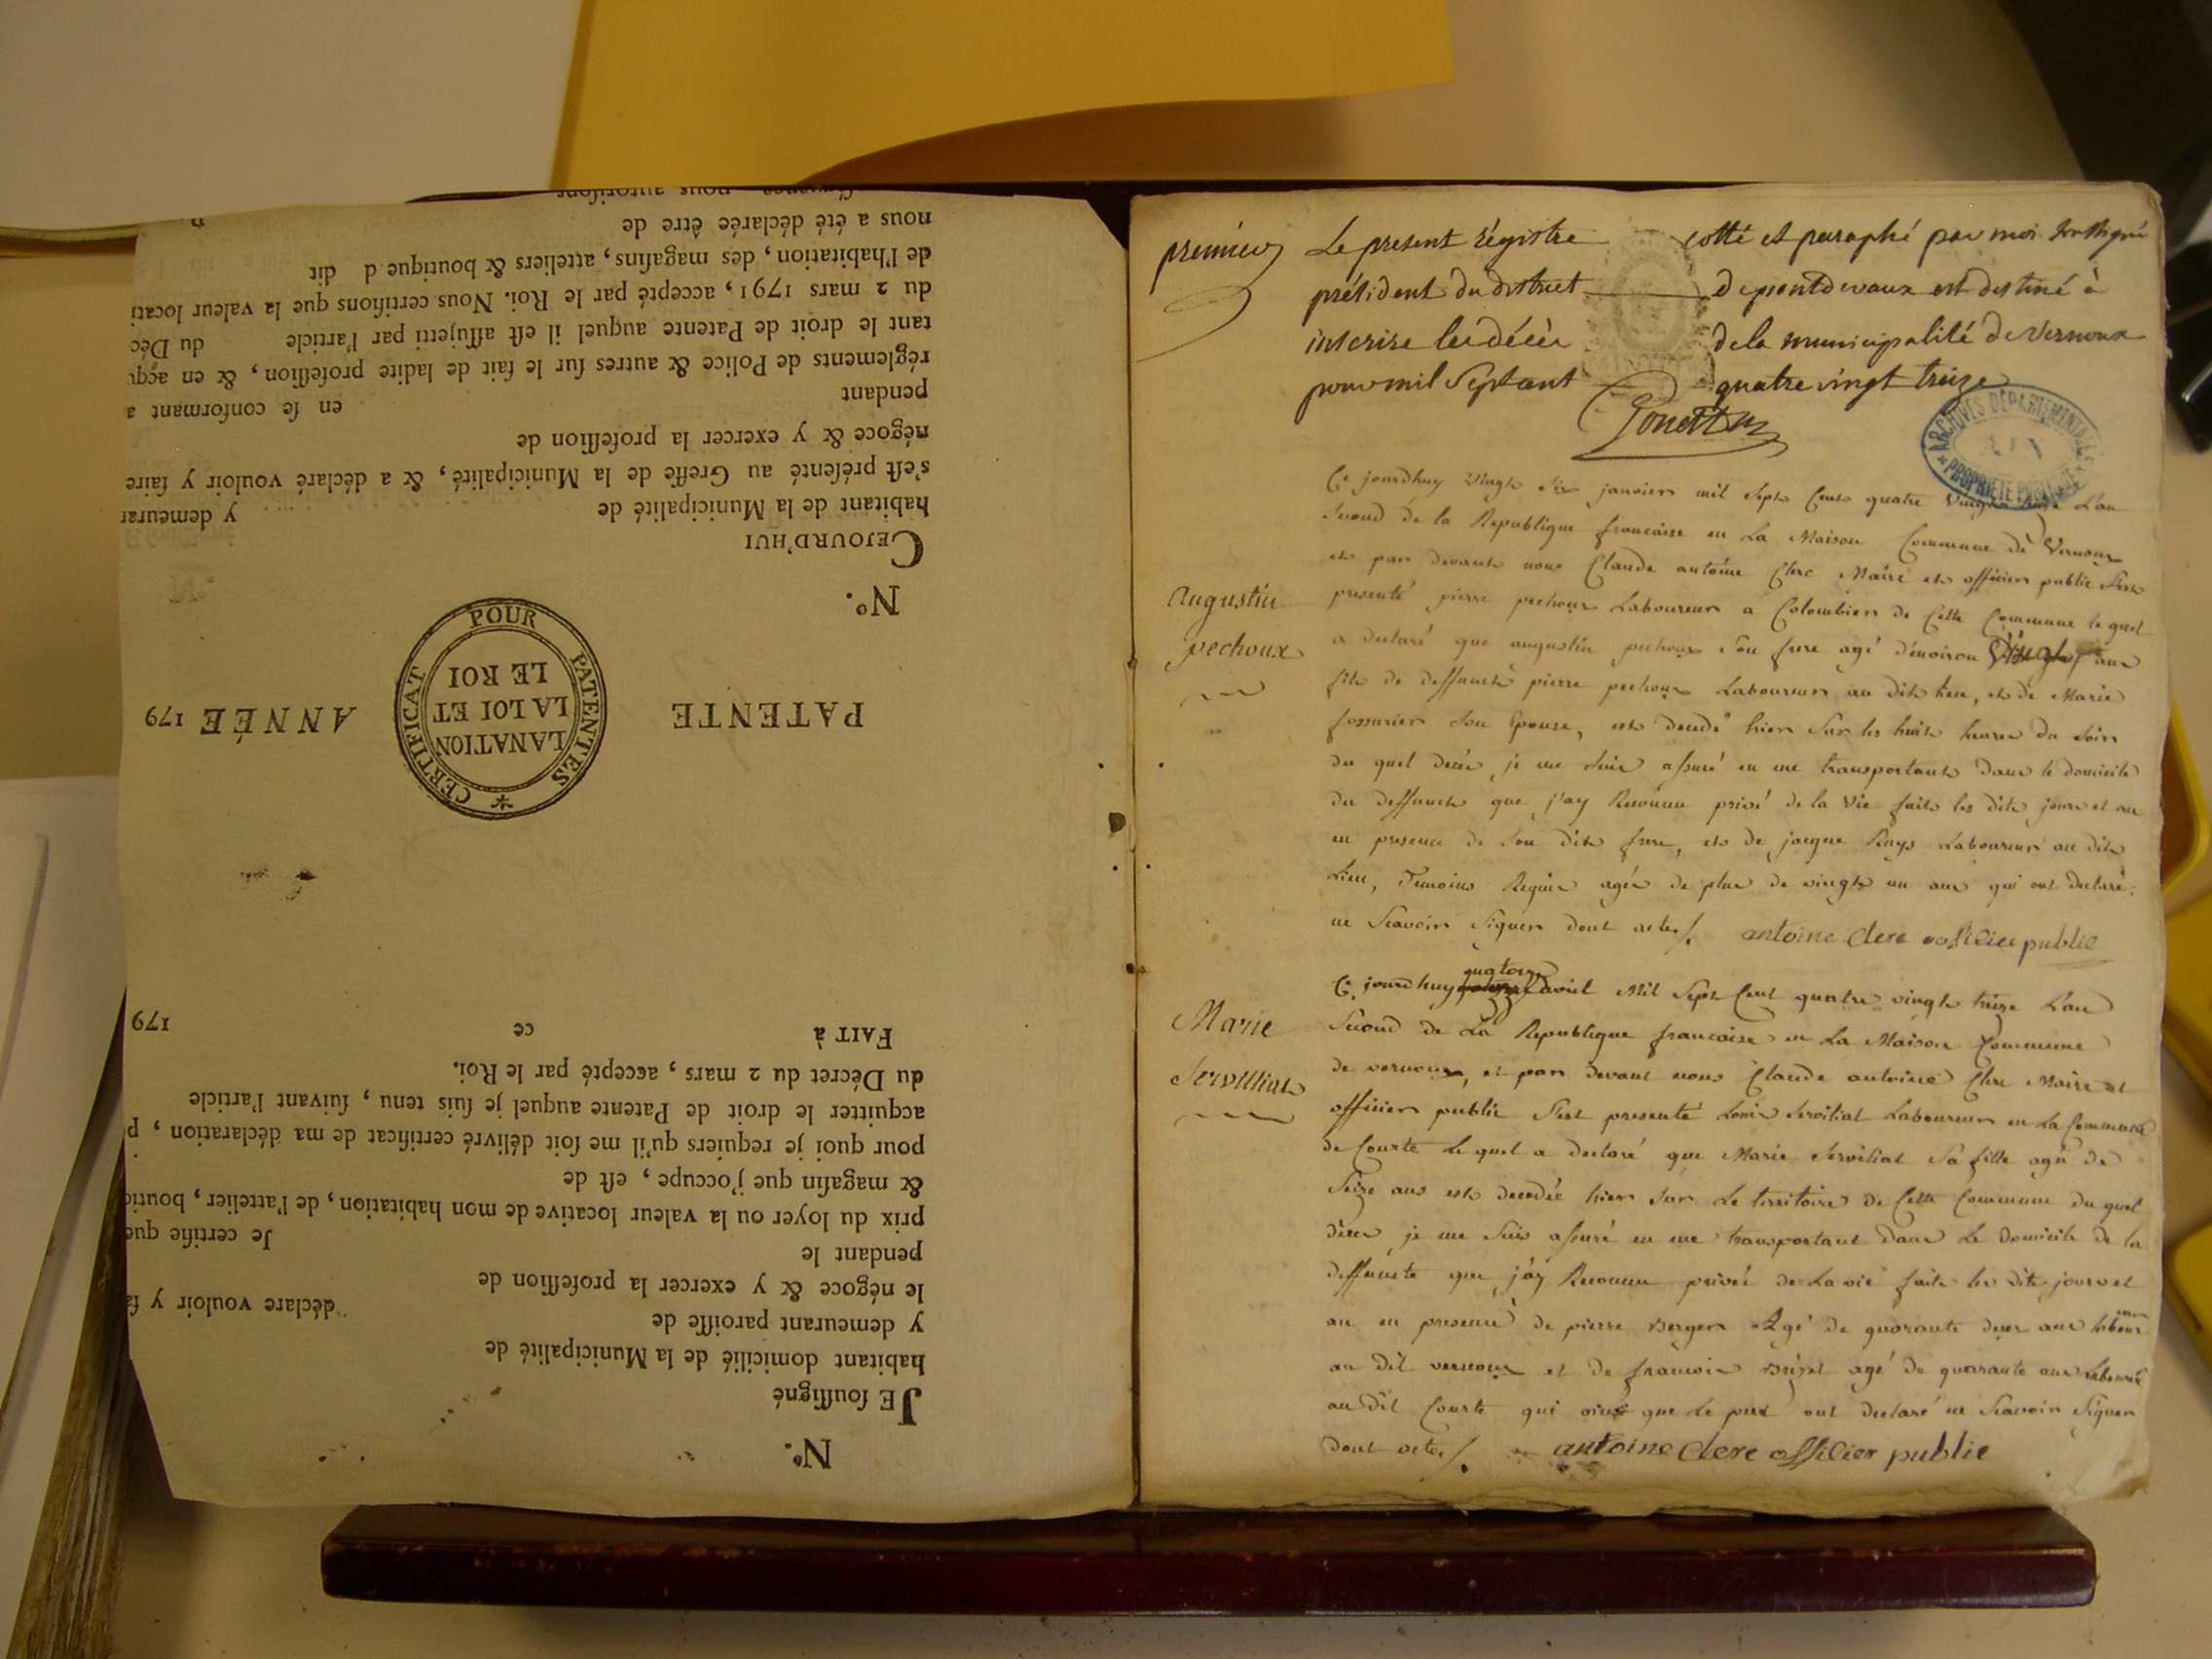 nous autorisons
nous a été déclarée être de
de l'habitation, des magasins, atteliers & boutique d dit
du 2 mars 1791, accepté par le Roi. Nous certifions que la valeur locati
tant le droit de Patente auquel il est assujetti par l'article du Déc
réglements de Police & autres sur le fait de ladite profession, & en acqu
pendant en se conformant a
négoce & y exercer la profession de
s'est présenté au Greffe de la Municipalité, & a déclaré vouloir y faire
habitant de la Municipalité de y demeuran
CEJOURD'HUI
N°.
PATENTE
CERTIFICAT POUR PATENTES
LA NATION
LA LOI ET
LE ROI
ANNÉE 179
FAIT à ce 179
du Décret du 2 mars, accepté par le Roi.
acquitter le droit de Patente auquel je suis tenu, suivant l'article
pour quoi je requiers qu'il me soit délivré certificat de ma déclaration, p
& magasin que j'occupe, est de
prix du loyer ou la valeur locative de mon habitation, de l'attelier, boutiq
pendant le Je certifie que
le négoce & y exercer la profession de
y demeurant paroisse de déclare vouloir y fa
habitant domicilié de la Municipalité de
JE soussigné
N°.
premier
Le present régistre cotté et paraphé par moi soussigné
président du district de pontdevaux est destiné à
inscrire les décès de la municipalité de Vernoux
pour mil Sept cent quatre vingt treize
ARCHIVES DÉPARTEMENTALES
AIN
PROPRIÉTÉ PUBLIQUE
augustin
pechoux
Ce jourdhuy vingt six janvier mil sept cent quatre vingt L'an
second de la Republique francaise en La Maison Commune de Vernoux
et par devant nous Claude antoine Clerc Maire et officier public sest
presenté pierre pechoux Laboureur a Colombier de Cette Commune le quel
a declaré que augustin pechoux son frere agé d'environ vingt ans
fils de deffunct pierre pechoux Laboureur au dit lieu, et de Marie
son Epouse, est decedé hier sur les huit heures du soir
du quel décès, je me suis assuré en me transportant dans le domicile
du deffunct que j'ay Reconnu privé de la Vie fait les dits jours et an
en presence de son dit frere, et de jacque Rays Laboureur au dit
Lieu, Temoins Requis agés de plus de vingt un ans qui ont declaré
ne Scavoir Signer dont acte./. antoine clerc officier public
Marie
Servilliat
quatorze
Ce jourdhuy avril Mil Sept Cent quatre vingt treize L'an
Second de La Republique francaise en La Maison Commune
de vernoux, et par devant nous Claude antoine Clerc Maire et
officier public S'est presenté Louis Servilliat Laboureur en La Commune
de Courte le quel a declaré que Marie Serviliat Sa fille agée de
Seize ans est decedée hier sur le territoire de Cette Commune du quel
décès je me suis assuré en me transportant dans le domicile de la
deffuncte que j'ay Reconnu privée de La vie fait les dits jours et
an en presence de pierre Berger Agé de quarante deux ans laboureur
au dit vernoux et de francois agé de quarante ans Laboureur
au dit Courte qui ainsi que le pere ont declaré ne Scavoir Signer
Dont acte./. antoine clerc officier public